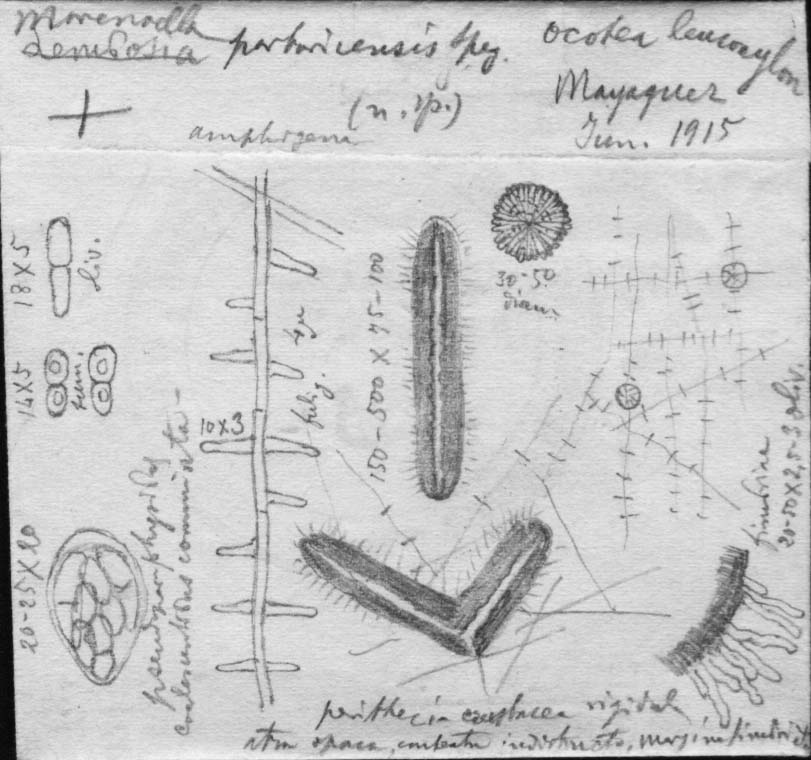 Morenoella
Lembosia portoricensis Speg. ocotea leucoxylon
(n. sp.) Mayaguez
amphigena Jun. 1915
18 X 5
oliv.
14 X 5
fum.
20-25 X 20
pseudoparaphysibus
coalescentibus commixta -
10 x 3
4 µ
fulig.
150-500 X 75-100
30-50
diam.
fimbriae
20-50 X 2.5-3 oliv.
perithecia crustacea rigidula
atra opaca, contextu indistincto, margine fimbriato